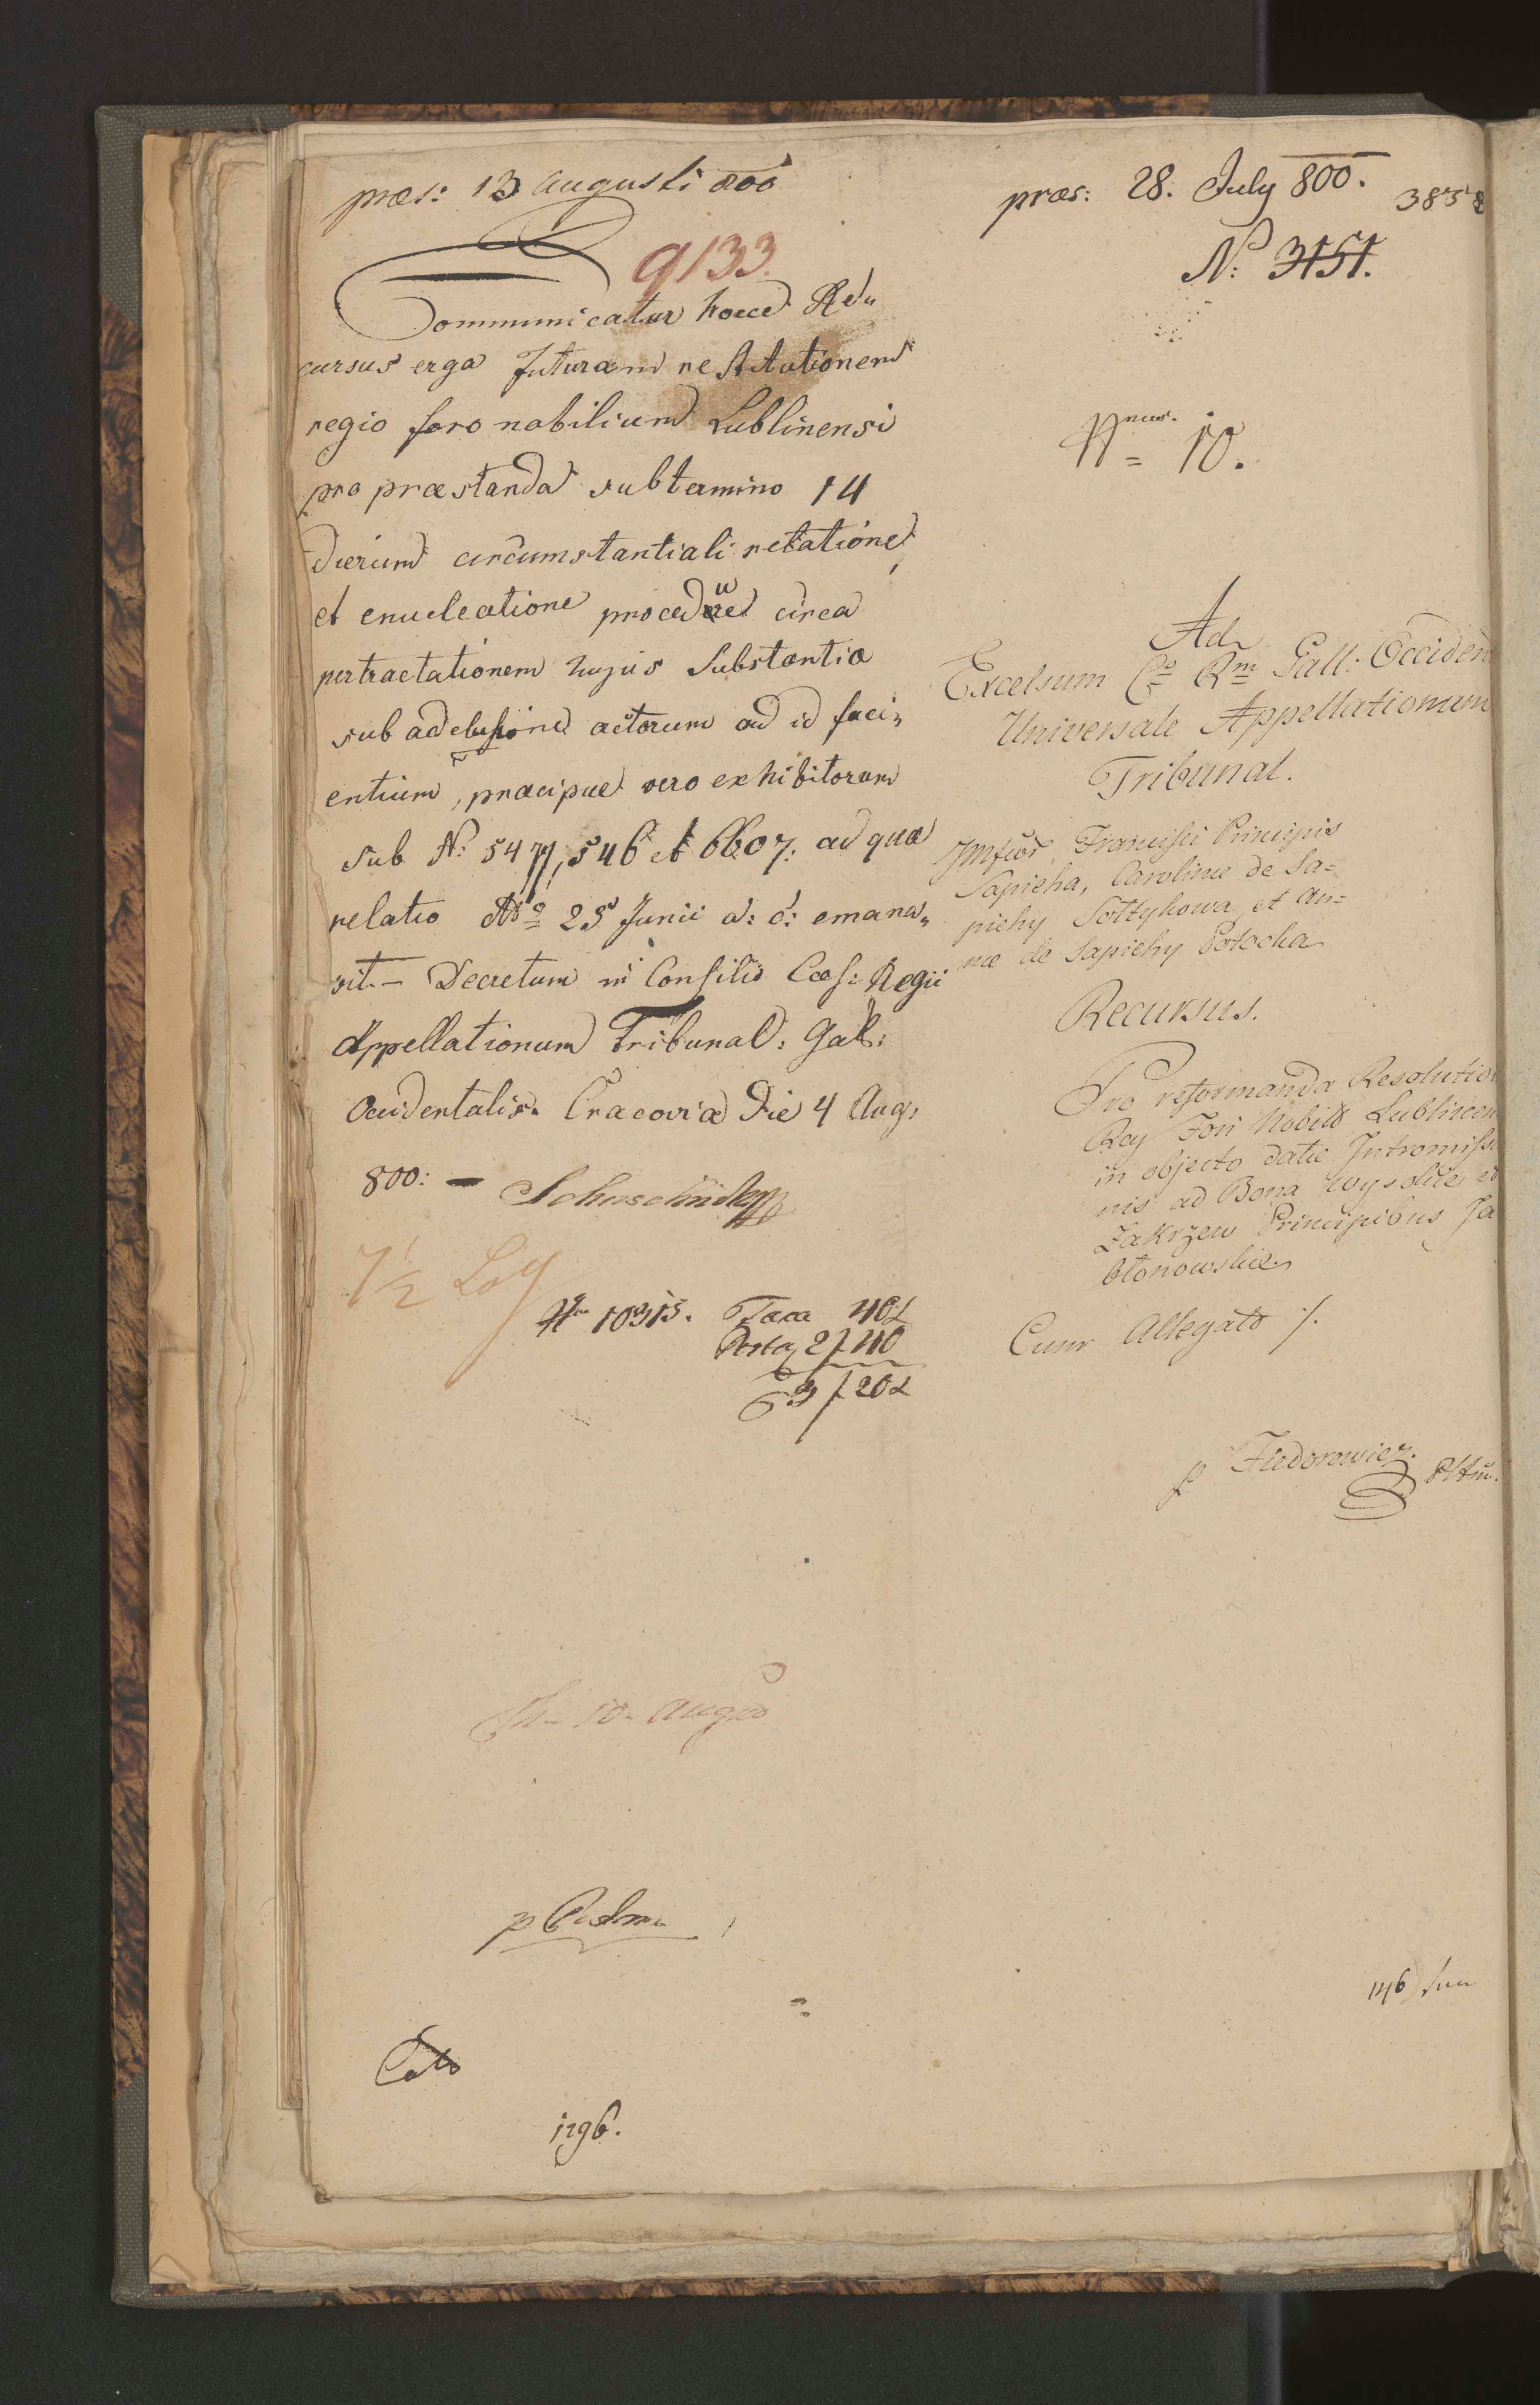 præs: 13 Augusti 800
9133.
Communicatur hocce Re„
cursus erga futuram restitutionem
regio foro nobilium Lublinensi
pro præstanda sub termino 14
dierum circumstantiali relatione,
et enucleatione procedue circa
pertractationem hujus Substantia
sub adclusione actorum ad id faci„
entium, præcipue vero exhibitorum
sub N: 5477, 546 et 6607: ad qua
relatio 25 Junii a: c: emana„
vit. – Decretum in Consilio Cæs: Regii
Appellationum Tribunal: Gal:
Occidentalis. Cracovia Die 4 Aug:
800: –
7½ Lo
10313. Taxa 40
Porto 2 f 40
3 f 20
10. Aug
1796.
præs: 28. July 800.
N: 3151.
10.
Ad
Excelsum C: R: Gall: Occiden
Universale Appellationum
Tribunal.
Francisci Principis
Sapieha, Carolinæ de Sa=
piehy Sołtykowa et An=
næ de Sapiehy Potocka
Recursus.
Pro reformanda Resolution
Reg Fori Nobil Lublinen
in objecto datæ Intromissi
nis ad Bona Wysokie et
Zakrzew Principibus Ja
błonowskie
Cum Allegato /.
p Fiedorowicz.
146